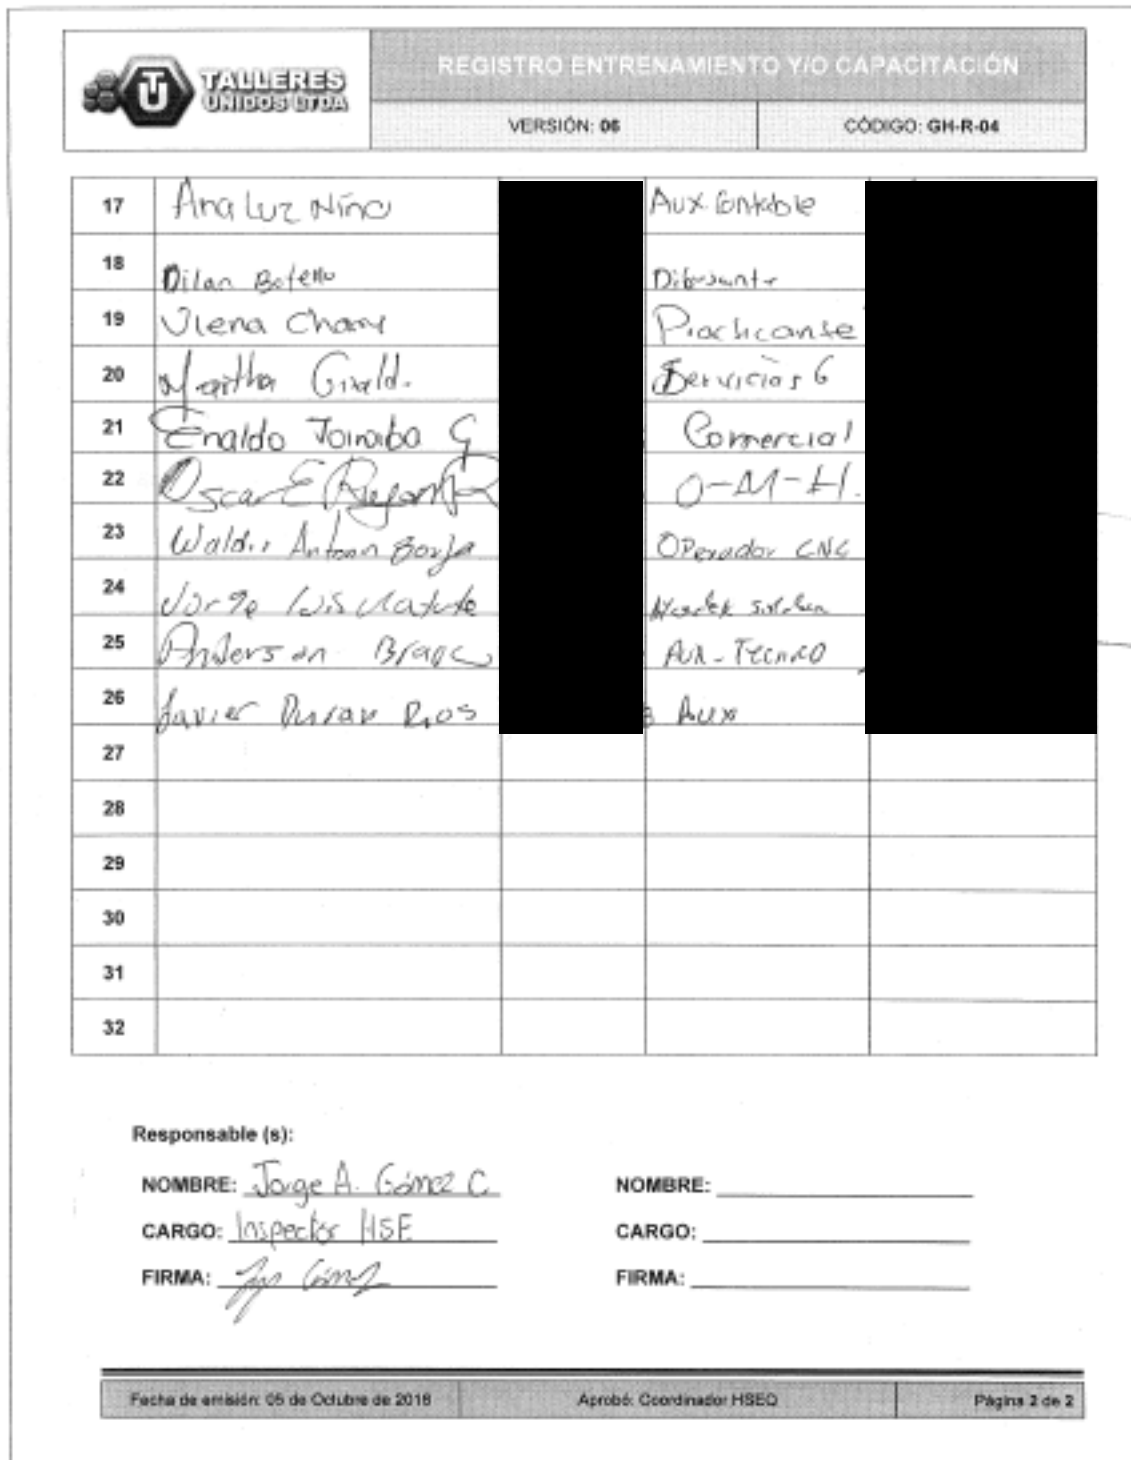 TALLERES
UNIDOS LTDA
REGISTRO ENTRENAMIENTO Y/O CAPACITACIÓN
VERSIÓN: 06
CÓDIGO: GH-R-04
17 Ana Luz Niño Aux. Contable
18 Dilan Botello Dibujante
19 Chona Practicante
20 Martha Girald. Servicios G
21 Enaldo G Comercial
22 Oscar E O-M-H.
23 Antonio Borja Operador CNC
24 Jorge Luis
25 Anderson Aux-Tecnico
26 Javier Duran Rios Aux
27
28
29
30
31
32
Responsable (s):
NOMBRE: Jorge A. Gómez C NOMBRE:
CARGO: Inspector HSE CARGO:
FIRMA: FIRMA:
Fecha de emisión: 05 de Octubre de 2018 Aprobó: Coordinador HSEQ Página 2 de 2